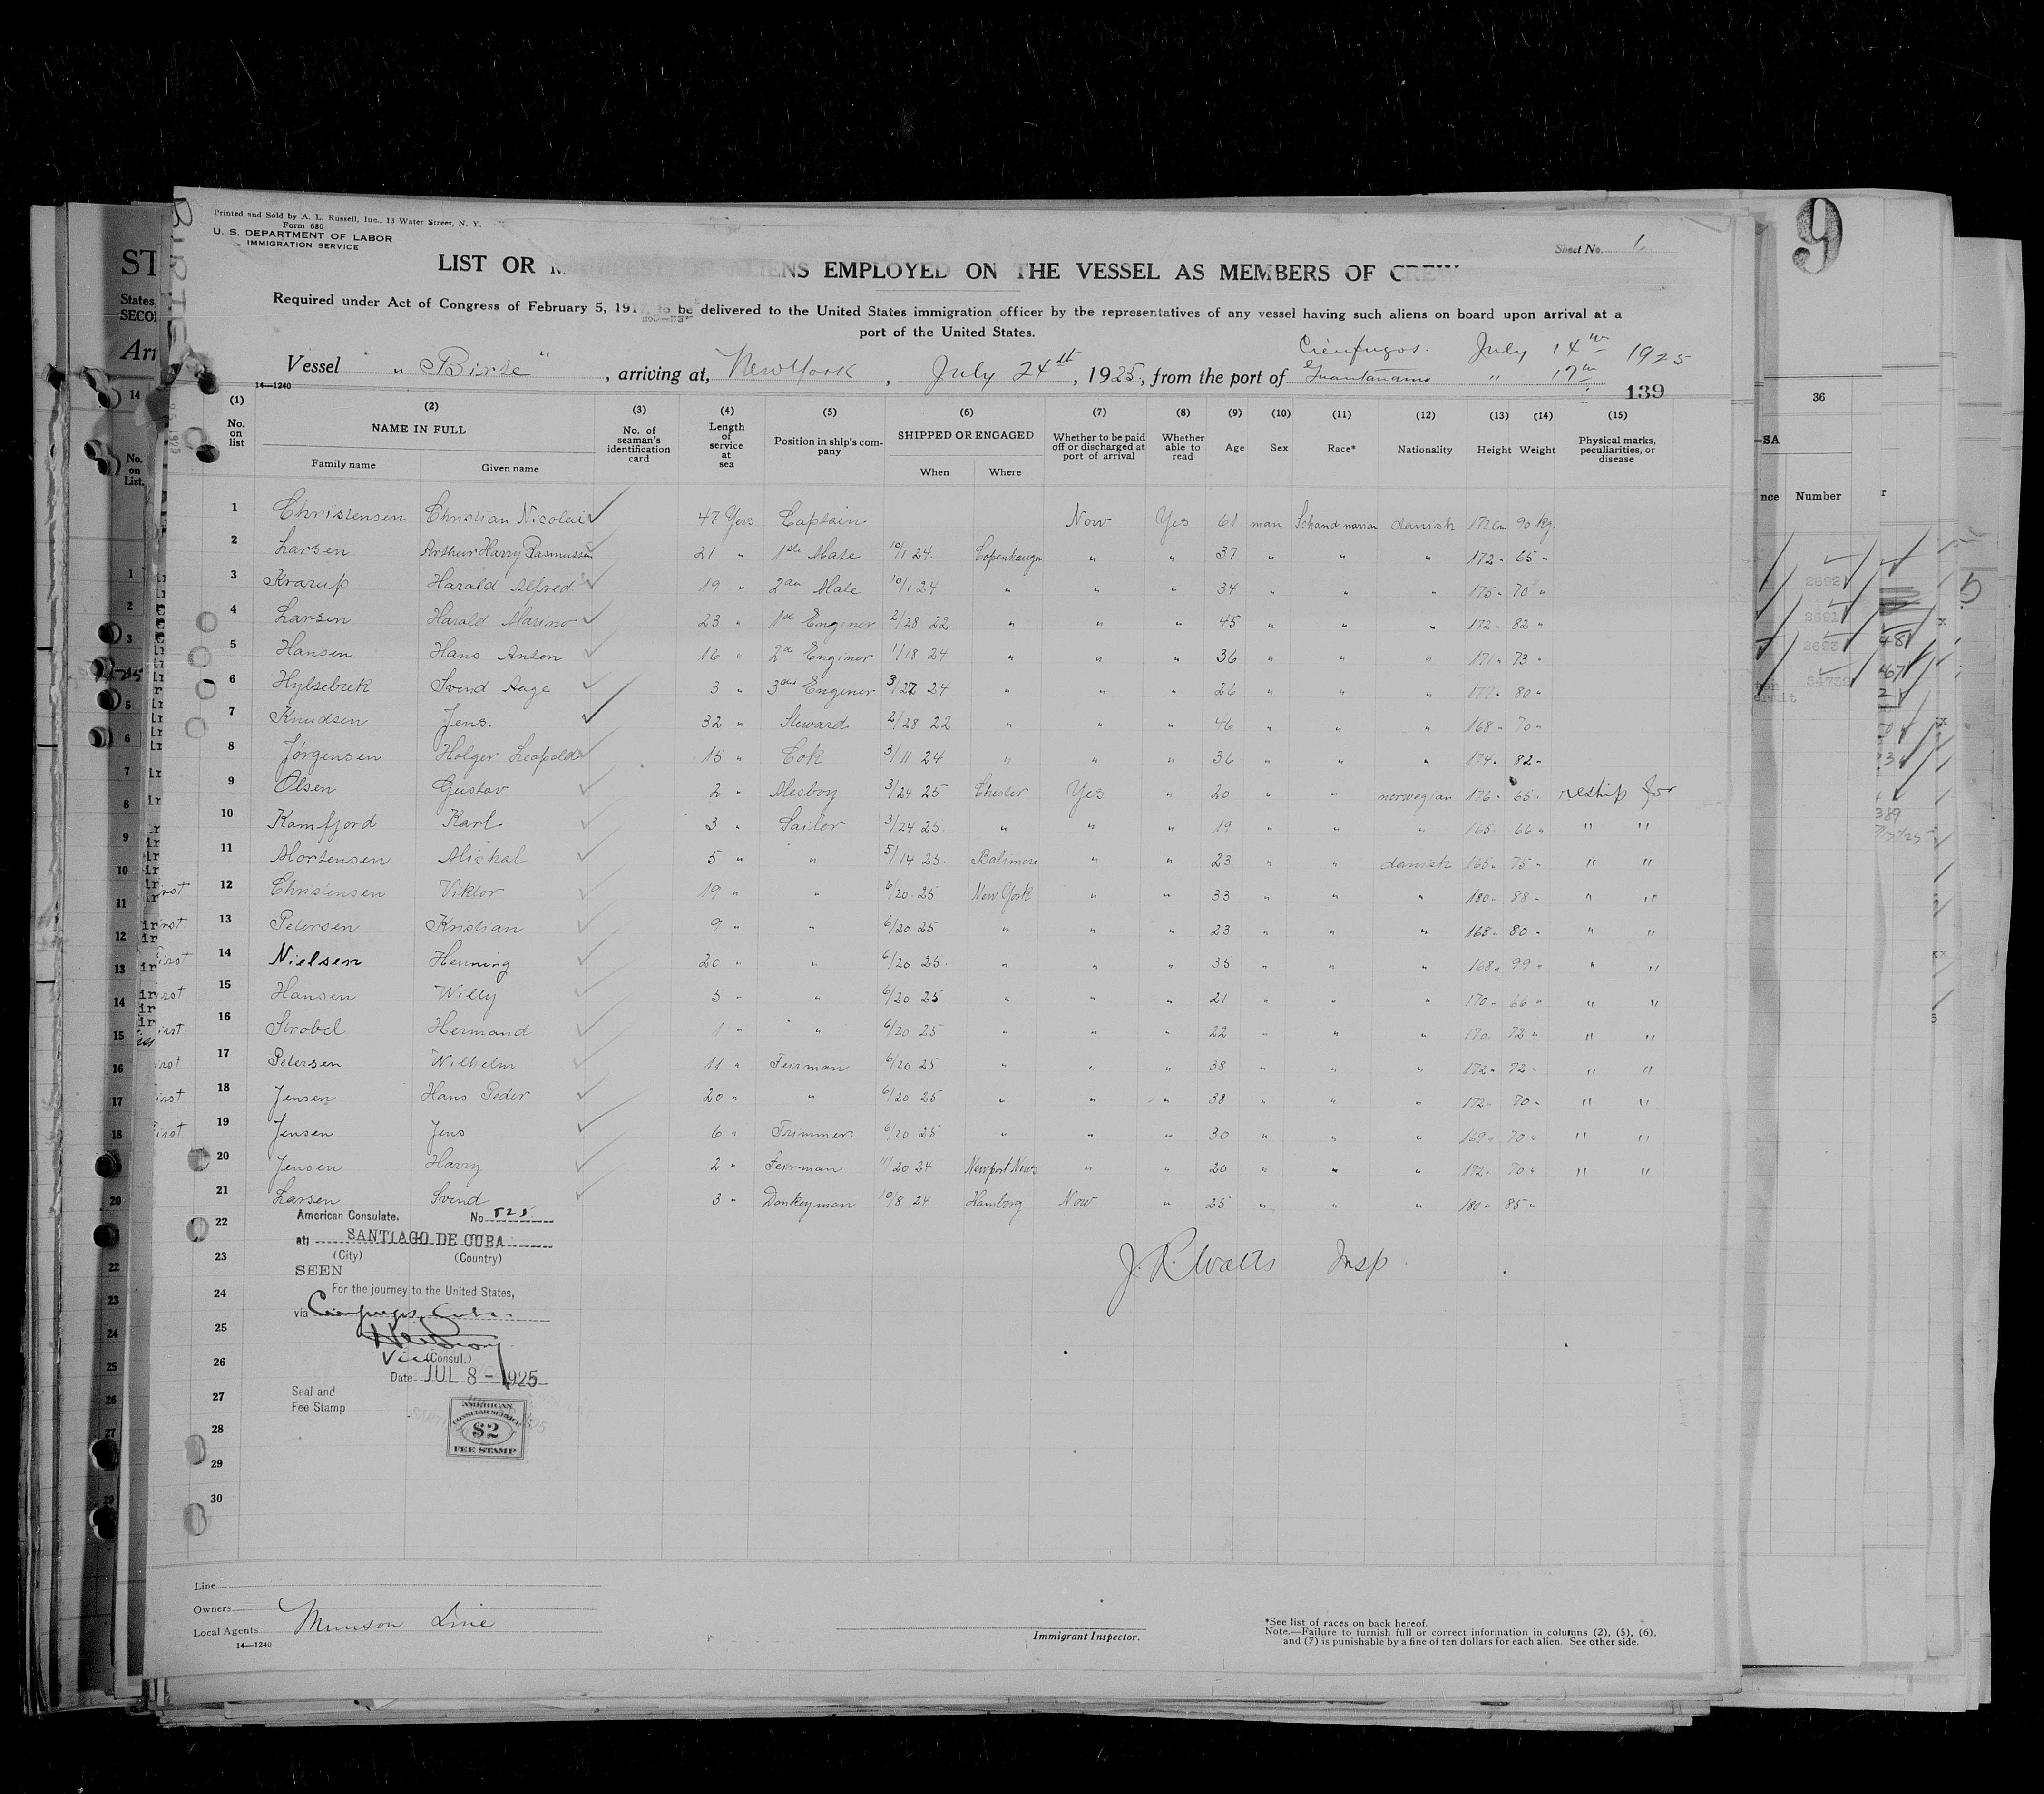 Printed and Sold by A. L. Russell, Inc., 13 Water Street, N. Y.
Form 680
U. S. DEPARTMENT OF LABOR
IMMIGRATION SERVICE
Sheet No. 1
9
LIST OR MANIFEST OF ALIENS EMPLOYED ON THE VESSEL AS MEMBERS OF CREW
Required under Act of Congress of February 5, 1917, to be delivered to the United States immigration officer by the representatives of any vessel having such aliens on board upon arrival at a
port of the United States.
Vessel "Birte", arriving at, New York, July 24th, 1925, from the port of Cienfugos. July 14th 1925
Guantanamo " 17th
14—1240
139
(1) (2) (3) (4) (5) (6) (7) (8) (9) (10) (11) (12) (13) (14) (15)
No. on list NAME IN FULL No. of seaman's identification card Length of service at sea Position in ship's company SHIPPED OR ENGAGED Whether to be paid off or discharged at port of arrival Whether able to read Age Sex Race* Nationality Height Weight Physical marks, peculiarities, or disease
Family name Given name When Where
1 Christensen Christian Nicolai 47 Yers Captain Now Yes 61 man Schandinavian danish 172 cm 90 kg.
2 Larsen Arthur Harry Rasmussen 21 " 1ste Mate 10/1 24. Copenhaugen " " 37 " " " 172 " 65 "
3 Krarup Harald Alfred 19 " 2den Mate 10/1 24 " " " 34 " " " 175 " 70 "
4 Larsen Harald Marino 23 " 1st Enginer 2/28 22 " " " 45 " " " 172 " 82 "
5 Hansen Hans Anton 16 " 2de Enginer 1/18 24 " " " 36 " " " 171 " 73 "
6 Hylsebeck Svend Aage 3 " 3die Enginer 3/27 24 " " " 26 " " " 177 " 80 "
7 Knudsen Jens. 32 " Steward 2/28 22 " " " 46 " " " 168 " 70 "
8 Jörgensen Holger Leopold 15 " Cok 3/11 24 " " " 36 " " " 174 " 82 "
9 Olsen Gustav 2 " Mesboy 3/24 25 Chester Yes " 20 " " norwegian 176 " 65 " reship for
10 Kamfjord Karl 3 " Sailor 3/24 25. " " " 19 " " " 165 " 66 " " "
11 Mortensen Michal 5 " " 5/14 25. Baltimore " " 23 " " danish 165 " 75 " " "
12 Christensen Viktor 19 " " 6/20 25 New York " " 33 " " " 180 " 88 " " "
13 Petersen Kristian 9 " " 6/20 25 " " " 23 " " " 168 " 80 " " "
14 Nielsen Henning 20 " " 6/20 25. " " " 35 " " " 168 " 99 " " "
15 Hansen Willy 5 " " 6/20 25 " " " 21 " " " 170 " 66 " " "
16 Strobel Hermand 1 " " 6/20 25 " " " 22 " " " 170 " 72 " " "
17 Petersen Wilhelm 11 " Feirman 6/20 25 " " " 38 " " " 172 " 72 " " "
18 Jensen Hans Peder 20 " " 6/20 25 " " " 38 " " " 172 " 70 " " "
19 Jensen Jens 6 " Trimmer 6/20 25 " " " 30 " " " 169 " 70 " " "
20 Jensen Harry 2 " Feirman 11/20 24 Newport News " " 20 " " " 172 " 70 " " "
21 Larsen Svend 3 " Donkeyman 10/8 24 Hamborg Now " 25 " " " 180 " 85 "
22
23
24
25
26
27
28
29
30
American Consulate. No. 525
at SANTIAGO DE CUBA
(City) (Country)
SEEN
For the journey to the United States,
via Cienfuegos, Cuba.
Vice (Consul.)
Date JUL 8 - 1925
Seal and
Fee Stamp
AMERICAN
CONSULAR SERVICE
$2
FEE STAMP
J. R. Watts Insp.
Line
Owners
Local Agents Munson Line
14—1240
Immigrant Inspector.
*See list of races on back hereof.
Note.—Failure to furnish full or correct information in columns (2), (5), (6),
and (7) is punishable by a fine of ten dollars for each alien. See other side.
36
Number
2692
2691
2693
54732